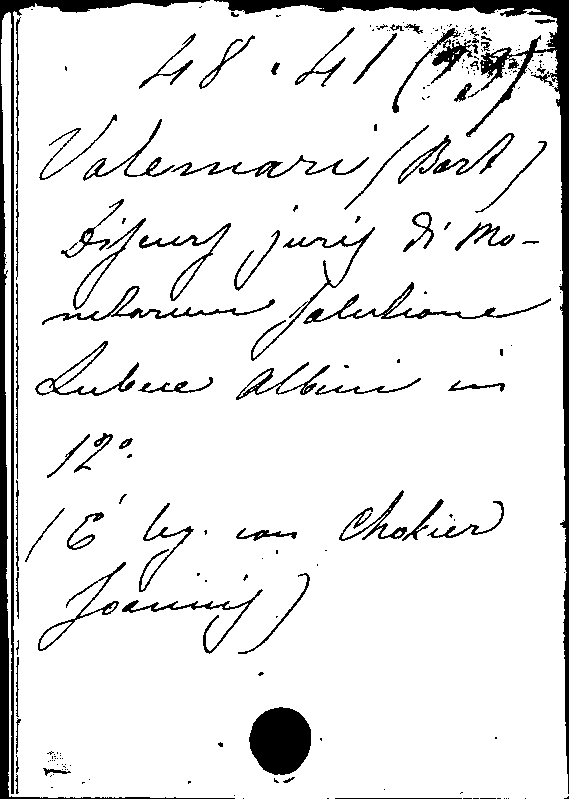 48.41 (2.9)
Valemari (Bart)
Discurs juris di Mo-
netarum Solutione
Lubece Albini in
12º.
(É leg. con Chokier
Joannis)